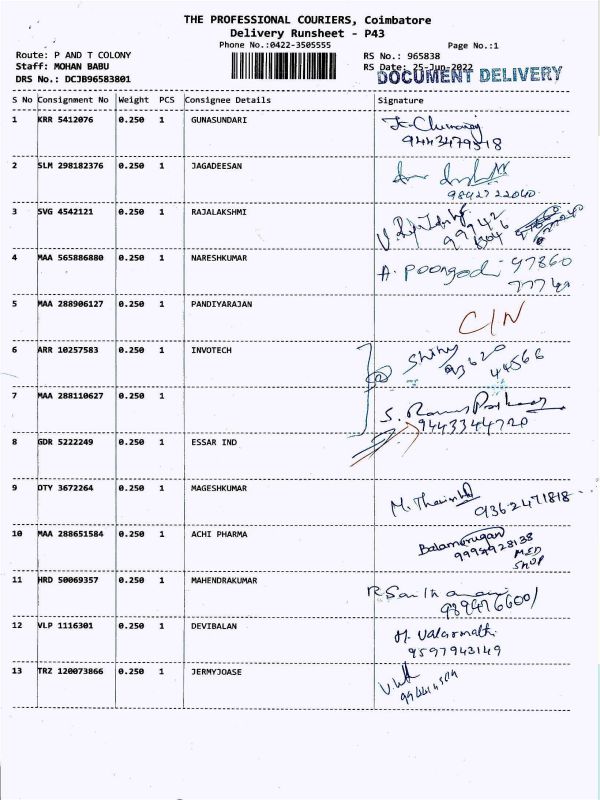 THE PROFESSIONAL COURIERS, Coimbatore
Delivery Runsheet - P43
Phone No.:0422-3505555
Page No.:1
Route: P AND T COLONY
RS No.: 965838
Staff: MOHAN BABU
RS Date: 25-Jun-2022
DRS No.: DCJB96583801
DOCUMENT DELIVERY
S No Consignment No Weight PCS Consignee Details Signature
1 KRR 5412076 0.250 1 GUNASUNDARI
9443479518
2 SLM 298182376 0.250 1 JAGADEESAN
9842722040
3 SVG 4542121 0.250 1 RAJALAKSHMI
4 MAA 565886880 0.250 1 NARESHKUMAR
A. Poongodi 97860
5 MAA 288906127 0.250 1 PANDIYARAJAN
C/N
6 ARR 10257583 0.250 1 INVOTECH
93620
44566
7 MAA 288110627 0.250 1
9443344720
8 GDR 5222249 0.250 1 ESSAR IND
9 DTY 3672264 0.250 1 MAGESHKUMAR
9362471818
10 MAA 288651584 0.250 1 ACHI PHARMA
Balamurugan
9994928138
MED
SHOP
11 HRD 50069357 0.250 1 MAHENDRAKUMAR
12 VLP 1116301 0.250 1 DEVIBALAN
M. Valarmathi
9597943149
13 TRZ 120073866 0.250 1 JERMYJOASE